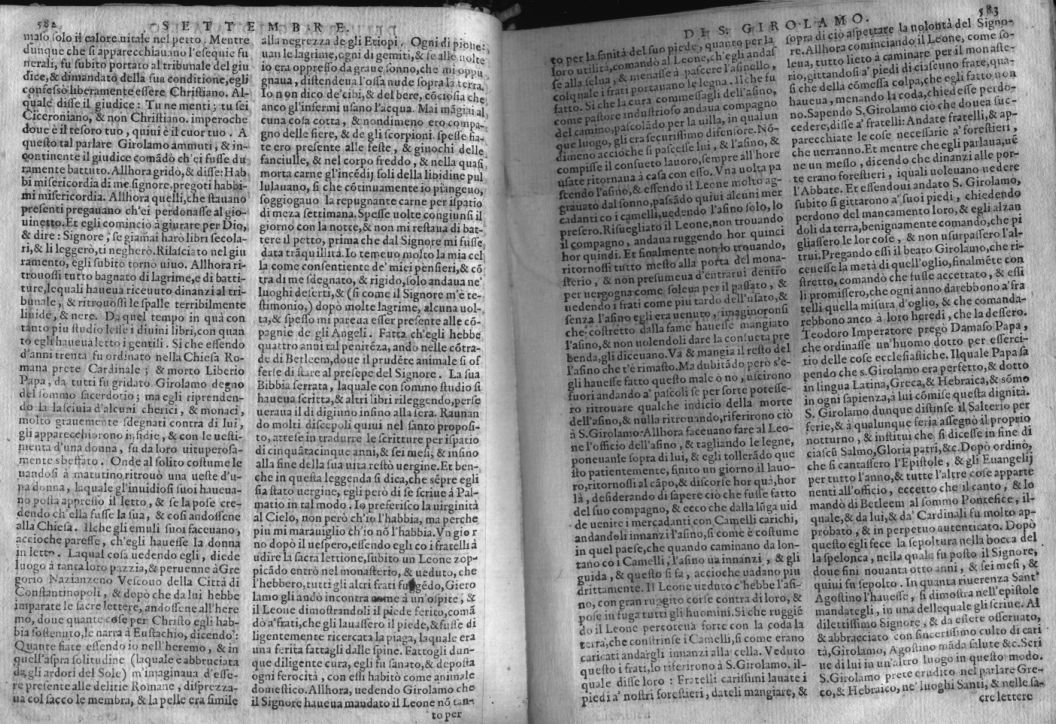 582 SETTEMBRE.
maso solo il calore uitale nel petto. Mentre
dunque che si apparecchiauano l'esequie fu
nerali, fu subito portato al tribunale del giu
dice, & dimandato della sua conditione, egli
confessò liberamente essere Christiano. Al-
quale disse il giudice: Tu ne menti; tu sei
Ciceroniano, & non Christiano. imperoche
doue è il tesoro tuo, quiui è il cuor tuo. A
questo tal parlare Girolamo ammutì, & in-
continente il giudice comādò ch'ei fusse du
ramente battuto. Allhora gridò, & disse: Hab
bi misericordia di me signore, pregoti habbi-
mi misericordia. Allhora quelli, che stauano
presenti pregauano ch'ei perdonasse al gio-
uinetto. Et egli cominciò a giurare per Dio,
& dire: Signore, se giamai harò libri secola-
ri, & li leggerò, ti negherò. Rilasciato nel giu
ramento, egli subito tornò uiuo. Allhora ri-
trouossi tutto bagnato di lagrime, e di batti-
ture, lequali haueua riceuuto dinanzi al tri-
bunale, & ritrouossi le spalle terribilmente
liuide, & nere. Da quel tempo in quà con
tanto piu studio lesse i diuini libri, con quan
to egli haueua letto i gentili. Si che essendo
d'anni trenta fu ordinato nella Chiesa Ro-
mana prete Cardinale; & morto Liberio
Papa, da tutti fu gridato Girolamo degno
del sommo sacerdotio; ma egli riprenden-
do la lasciuia d'alcuni cherici, & monaci,
molto grauemente sdegnati contra di lui,
gli apparecchiorono insidie, & con le uesti-
menta d'una donna, fu da loro uituperosa-
mente sbeffato. Onde al solito costume le
uandosi à matutino, ritrouò una ueste d'u-
na donna, laquale gl'inuidiosi suoi haueua-
no posta appresso il letto, & se la pose cre-
dendo ch'ella fusse la sua, & così andossene
alla Chiesa. Il che gli emuli suoi faceuano,
accioche paresse, ch'egli hauesse la donna
in letto. Laqual cosa uedendo egli, diede
luogo à tanta loro pazzia, & peruenne à Gre
gorio Nazianzeno Vescouo della Città di
Constantinopoli, & dopò che da lui hebbe
imparate le sacre lettere, andossene all'here
mo, doue quante cose per Christo egli hab-
bia sostenuto, le narra à Eustachio, dicendo:
Quante fiate essendo io nell'heremo, & in
quell'aspra solitudine (laquale è abbruciata
da gli ardori del Sole) m'imaginaua d'esse-
re presente alle delitie Romane, disprezza-
ua col sacco le membra, & la pelle era simile
alla negrezza de gli Etiopi. Ogni dì pione-
uan le lagrime, ogni dì gemiti, & se alle uolte
io era oppresso da graue sonno, che mi oppu
gnaua, distendeua l'ossa nude sopra la terra.
Io non dico de' cibi, & del bere, cōciosia che
anco gl'infermi usano l'acqua. Mai māgiai al
cuna cosa cotta, & nondimeno ero compa-
gno delle fiere, & de gli scorpioni. spesse fia-
te ero presente alle feste, & giuochi delle
fanciulle, & nel corpo freddo, & nella quasi
morta carne gl'incēdij soli della libidine pul
lulauano, si che cōtinuamente io piangeuo,
soggiogauo la repugnante carne per ispatio
di meza settimana. Spesse uolte congiunsi il
giorno con la notte, & non mi restaua di bat-
tere il petto, prima che dal Signore mi fusse
data trāquillità. Io temeuo molto la mia cel
la come consentiente de' miei pensieri, & cō
tra di me sdegnato, & rigido, solo andaua ne'
luoghi deserti, & (si come il Signore m'è te-
stimonio) dopò molte lagrime, alcuna uol-
ta, & spesso mi pareua esser presente alle cō-
pagnie de gli Angeli. Fatta ch'egli hebbe
quattro anni tal penitēza, andò nelle cōtra-
de di Betleem, doue il prudēte animale si of
ferse di stare al presepe del Signore. La sua
Bibbia serrata, laquale con sommo studio si
haueua scritta, & altri libri rileggendo, perse
ueraua il dì digiuno insino alla sera. Raunan
do molti discepoli quiui nel santo proposi-
to, attese in tradurre le scritture per ispatio
di cinquātacinque anni, & sei mesi, & insino
alla fine della sua uita restò uergine. Et ben-
che in questa leggenda si dica, che sēpre egli
sia stato uergine, egli però di se scriue à Pal-
matio in tal modo. Io preferisco la uirginità
al Cielo, non però ch'io l'habbia, ma perche
piu mi marauiglio ch'io nō l'habbia. Vn gior
no dopò il uespero, essendo egli co i fratelli à
udire la sacra lettione, subito un Leone zop-
picādo entrò nel monasterio, & ueduto, che
l'hebbero, tutti gli altri frati fuggēdo, Giero
lamo gli andò incontra come à un'ospite, &
il Leone dimostrandoli il piede ferito, comā
dò a' frati, che gli lauassero il piede, & fusse di
ligentemente ricercata la piaga, laquale era
una ferita fattagli dalle spine. Fattogli dun-
que diligente cura, egli fu sanato, & deposta
ogni ferocità, con essi habitò come animale
domestico. Allhora, uedendo Girolamo che
il Signore haueua mandato il Leone nō tan-
to per
DI S. GIROLAMO. 583
to per la sanità del suo piede, quanto per la
loro utilità, comandò al Leone, ch'egli andas
se alla selua, & menasse à pascere l'asinello,
col quale i frati portauano le legna. il che fu
fatto. Si che la cura commessagli dell'asino,
come pastore industrioso andaua compagno
del camino, pascolādo per la uilla, in qualun
que luogo, gli era securissimo difensore. Nō-
dimeno accioche si pascesse lui, & l'asino, &
compisse il consueto lauoro, sempre all'hore
usate ritornaua à casa con esso. Vna uolta pa
scendo l'asino, & essendo il Leone molto ag-
grauato dal sonno, passādo quiui alcuni mer
cadanti co i camelli, uedendo l'asino solo, lo
presero. Risuegliato il Leone, non trouando
il compagno, andaua ruggendo hor quinci
hor quindi. Et finalmente non lo trouando,
ritornossi tutto mesto alla porta del mona-
sterio, & non presumeua d'entrarui dentro
per uergogna come soleua per il passato, &
uedendo i frati come piu tardo dell'usato, &
senza l'asino egli era uenuto, imaginoronsi
che costretto dalla fame hauesse mangiato
l'asino, & non uolendoli dare la consueta pre
benda, gli diceuano. Và & mangia il resto del
l'asino che t'è rimasto. Ma dubitādo però s'e-
gli hauesse fatto questo male ò no, uscirono
fuori andando a' pascoli se per sorte potesse-
ro ritrouare qualche indicio della morte
dell'asino, & nulla ritrouando, riferirono ciò
à S. Girolamo. Allhora faceuano fare al Leo-
ne l'officio dell'asino, & tagliando le legne,
poneuanle sopra di lui, & egli tollerādo que
sto patientemente, finito un giorno il lauo-
ro, ritornossi al cāpo, & discorse hor quà, hor
là, desiderando di sapere ciò che fusse fatto
del suo compagno, & ecco che dalla lūga uid
de uenire i mercadanti con Camelli carichi,
andandoli innanzi l'asino, si come è costume
in quel paese, che quando caminano da lon-
tano co i Camelli, l'asino ua innanzi, & gli
guida, & questo si fa, accioche uadano piu
drittamente. Il Leone ueduto c'hebbe l'asi-
no, con gran ruggito corse contra di loro, &
pose in fuga tutti gli huomini. Si che ruggiē
do il Leone percoteua forte con la coda la
terra, che constrinse i Camelli, si come erano
caricati andargli innanzi alla cella. Veduto
questo i frati, lo riferirono à S. Girolamo, il-
quale disse loro: Fratelli carissimi lauate i
piedi a' nostri forestieri, dateli mangiare, &
sopra di ciò aspettate la uolontà del Signo-
re. Allhora cominciando il Leone, come so-
leua, tutto lieto à caminare per il monaste-
rio, gittandosi a' piedi di ciascuno frate, qua-
si che della cōmessa colpa, che egli fatto non
haueua, menando la coda, chiedesse perdo-
no. Sapendo S. Girolamo ciò che doueа suc-
cedere, disse a' fratelli: Andate fratelli, & ap-
parecchiate le cose necessarie a' forestieri,
che uerranno. Et mentre che egli parlaua, uē
ne un messo, dicendo che dinanzi alle por-
te erano forestieri, iquali uoleuano uedere
l'Abbate. Et essendoui andato S. Girolamo,
subito si gittarono a' suoi piedi, chiedendo
perdono del mancamento loro, & egli alzan
doli da terra, benignamente comandò, che pi
gliassero le lor cose, & non usurpassero l'al-
trui. Pregando essi il beato Girolamo, che ri-
ceuesse la metà di quell'oglio, finalmēte con
stretto, comandò che fusse accettato, & essi
li promissero, che ogni anno darebbono a' fra
telli quella misura d'oglio, & che comanda-
rebbono anco à loro heredi, che la dessero.
Teodoro Imperatore pregò Damaso Papa,
che ordinasse un'huomo dotto per esserci-
tio delle cose ecclesiastiche. Ilquale Papa sa
pendo che s. Girolamo era perfetto, & dotto
in lingua Latina, Greca, & Hebraica, & sōmo
in ogni sapienza, à lui cōmise questa dignità.
S. Girolamo dunque distinse il Salterio per
ferie, & à qualunque feria assegnò il proprio
notturno, & instituì che si dicesse in fine di
ciascū Salmo, Gloria patri, &c. Dopò ordinò,
che si cantassero l'Epistole, & gli Euangelij
per tutto l'anno, & tutte l'altre cose apparte
nenti all'officio, eccetto che il canto, & lo
mandò di Betleem al sommo Pontefice, il-
quale, & da lui, & da' Cardinali fu molto ap-
probato, & in perpetuo autenticato. Dopò
questo egli fece la sepoltura nella bocca del
la spelonca, nella quale fu posto il Signore,
doue finì nouanta otto anni, & sei mesi, &
quiui fu sepolto. In quanta riuerenza Sant'
Agostino l'hauesse, si dimostra nell'epistole
mandategli, in una delle quale gli scriue. Al
dilettissimo Signore, & da essere osseruato,
& abbracciato con sincerissimo culto di cari
tà, Girolamo, Agostino māda salute &c. Scri
ue di lui in un'altro luogo in questo modo.
S. Girolamo prete erudito nel parlare Gre-
co, & Hebraico, ne' luoghi Santi, & nelle sa-
cre lettere